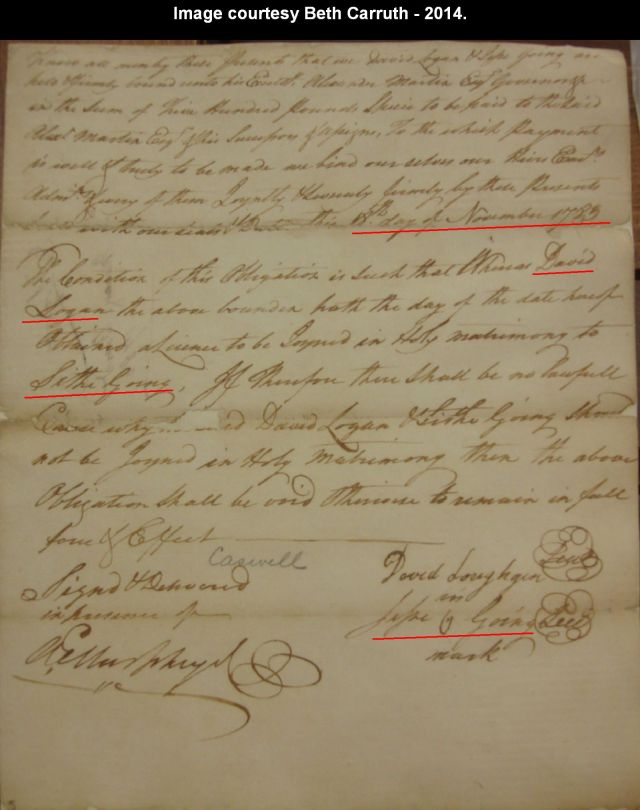 Image courtesy Beth Carruth - 2014.
Know all men by these Presents that we David Logan & Jesse Going are
held & firmly bound unto his Excelly. Alexander Martin Esqr. Governor &c
in the Sum of Five Hundred Pounds Specie to be paid to the said
Alexr. Martin Esqr. & his Successors & assigns, To the which Payment
is well & truly to be made we bind ourselves our Heirs Execrs.
Admrs. every of them Joyntly & severaly firmly by these Presents
with our seals & Dated this 18th day of November 1783
The Condition of this Obligation is Such that Whereas David
Logan the above bounden hath the day of the date hereof
Obtained a Licence to be Joyned in Holy matrimony to
Sithe Going, If Therefore there shall be no lawfull
Cause why David Logan & Sithe Going Should
not be Joyned in Holy Matrimony then the above
Obligation Shall be void Otherwise to remain in full
force & Effect
Caswell
Signd & Delivered
in presence of
AE Murphey
David Loughgin Seal
his
Jesse Going Seal
mark